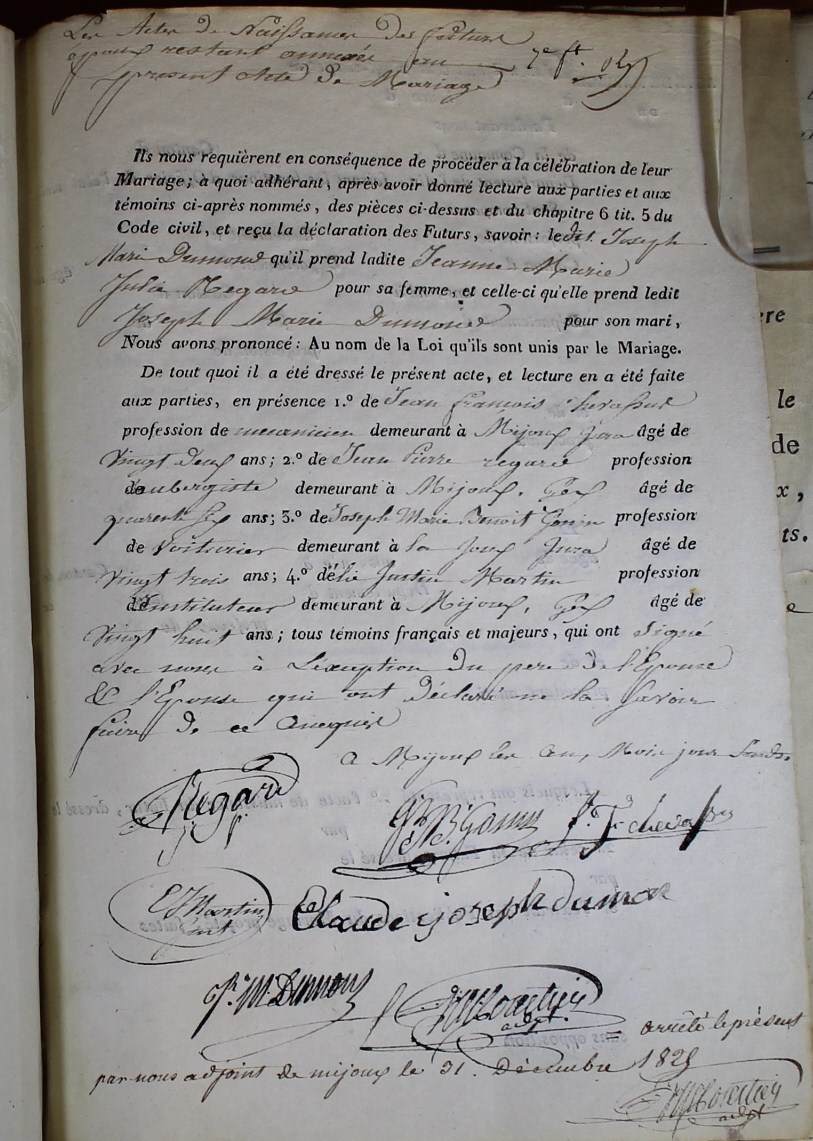 Les Actes de Naissance des future
époux restant annexés au
présent Acte de Mariage
Ils nous requièrent en conséquence de procéder à la célébration de leur
Mariage ; à quoi adhérant, après avoir donné lecture aux parties et aux
témoins ci-après nommés, des pièces ci-dessus et du chapitre 6 tit. 5 du
Code civil, et reçu la déclaration des Futurs, savoir : ledit Joseph
Marie Dumond qu'il prend ladite Jeanne Marie
Julie Regard pour sa femme, et celle-ci qu'elle prend ledit
Joseph Marie Dumond pour son mari,
Nous avons prononcé : Au nom de la Loi qu'ils sont unis par le Mariage.
De tout quoi il a été dressé le présent acte, et lecture en a été faite
aux parties, en présence 1.º de Jean François
profession de mecanicien demeurant à Mijoux âgé de
vingt deux ans ; 2.º de Jean Pierre regard profession
d'aubergiste demeurant à Mijoux, Gex âgé de
quarente six ans ; 3.º de Joseph Marie Benoit profession
de voiturier demeurant à la Joux Jura âgé de
vingt trois ans ; 4.º d'élie Justin Martin profession
d'instituteur demeurant à Mijoux, Gex âgé de
vingt huit ans ; tous témoins français et majeurs, qui ont signé
avec nous à L'exception du pere de l'Epouse
& l'Epouse qui ont déclaré ne la savoir
faire de ce enquis
A Mijoux les an, Mois jour
Regard
Martin
Claude joseph dumon
J. M. Dumond
adjt.
arrêté le présent
par nous adjoint de mijoux le 31 Décembre
adjt
ere
le
de
x,
ts.
e